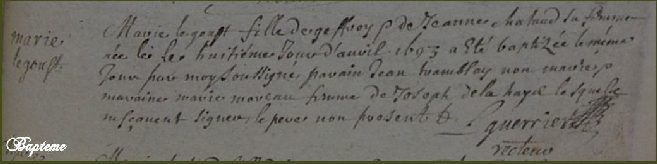 marie
legoust
Marie legoust fille de geffroy & de Jeanne chataud sa femme
née le huitième Jour d'avril 1693 a Eté baptizée le mesme
Jour par moy Soussigné parain Jean tramblay non mariés
maraine marie moreau femme de Joseph dela haye lesquels
ne sçavent signer, le pere non present &
L guerrier
recteur
Bapteme